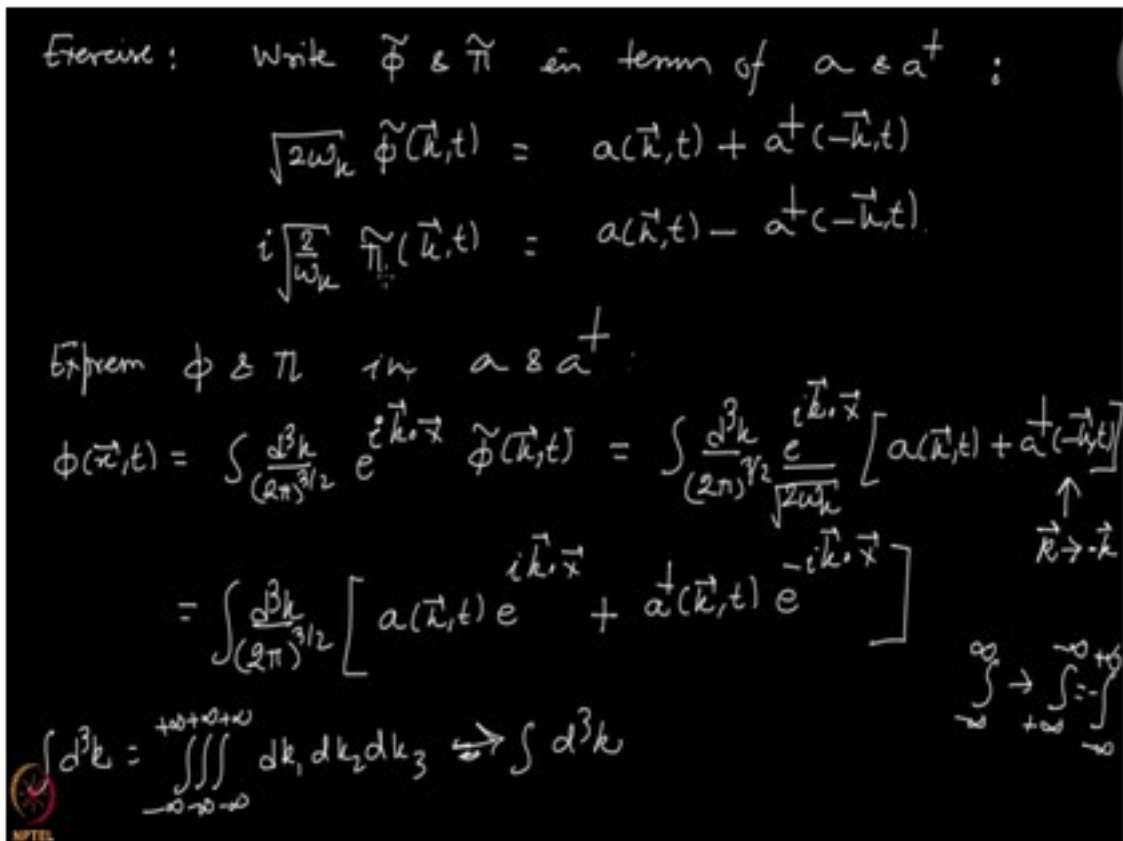 Exercise: Write φ̃ & π̃ in term of a & a† :
√2ω_k φ̃(k⃗,t) = a(k⃗,t) + a†(-k⃗,t)
i√(2/ω_k) π̃(k⃗,t) = a(k⃗,t) - a†(-k⃗,t).
Exprem φ & π in a & a† :
φ(x⃗,t) = ∫ d³k/(2π)^{3/2} e^{ik⃗·x⃗} φ̃(k⃗,t) = ∫ d³k/(2π)^{3/2} e^{ik⃗·x⃗}/√2ω_k [a(k⃗,t) + a†(-k⃗,t)]
↑
k⃗→-k⃗
= ∫ d³k/(2π)^{3/2} [ a(k⃗,t) e^{ik⃗·x⃗} + a†(k⃗,t) e^{-ik⃗·x⃗} ]
∫_{-∞}^{∞} → ∫_{+∞}^{-∞} = -∫_{-∞}^{+∞}
∫d³k = ∫∫∫_{-∞ -∞ -∞}^{+∞ +∞ +∞} dk₁ dk₂ dk₃ → ∫ d³k
NPTEL